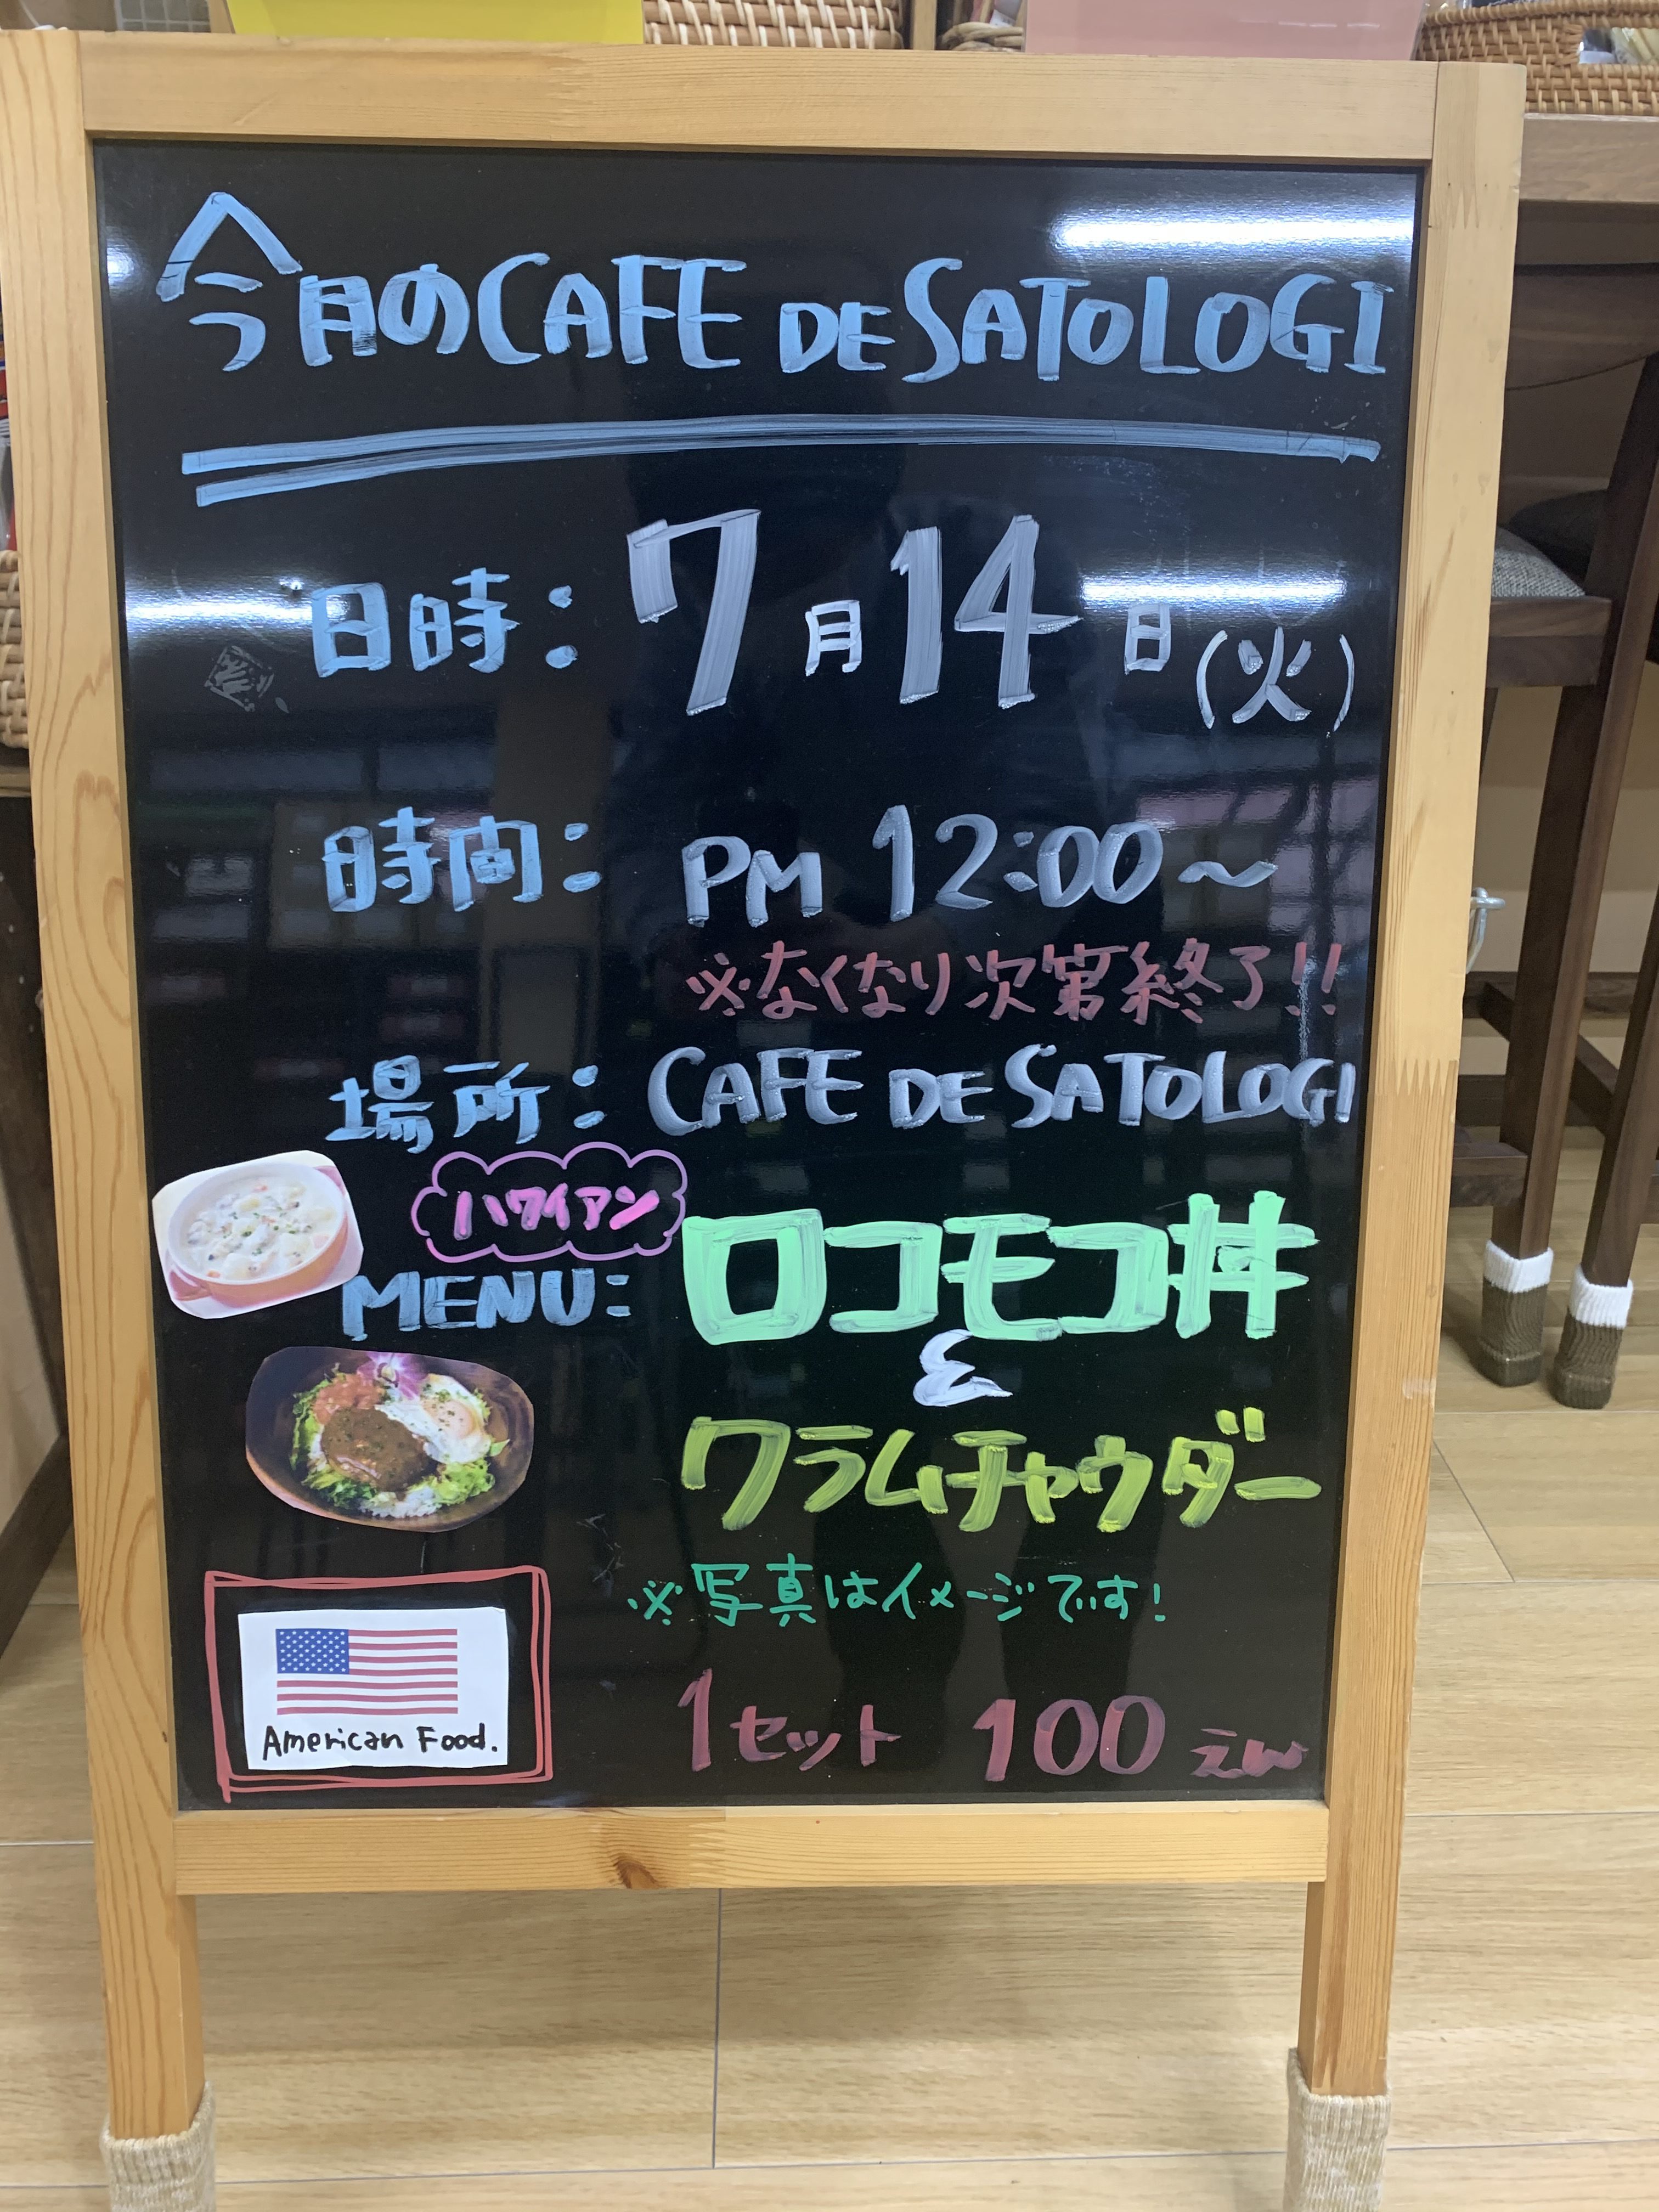 今月のCAFE DE SATOLOGI
日時：7月14日（火）
時間：PM 12:00〜
※なくなり次第終了!!
場所：CAFE DE SATOLOGI
ハワイアン
MENU：ロコモコ丼
&
クラムチャウダー
※写真はイメージです！
American Food.
1セット 100えん